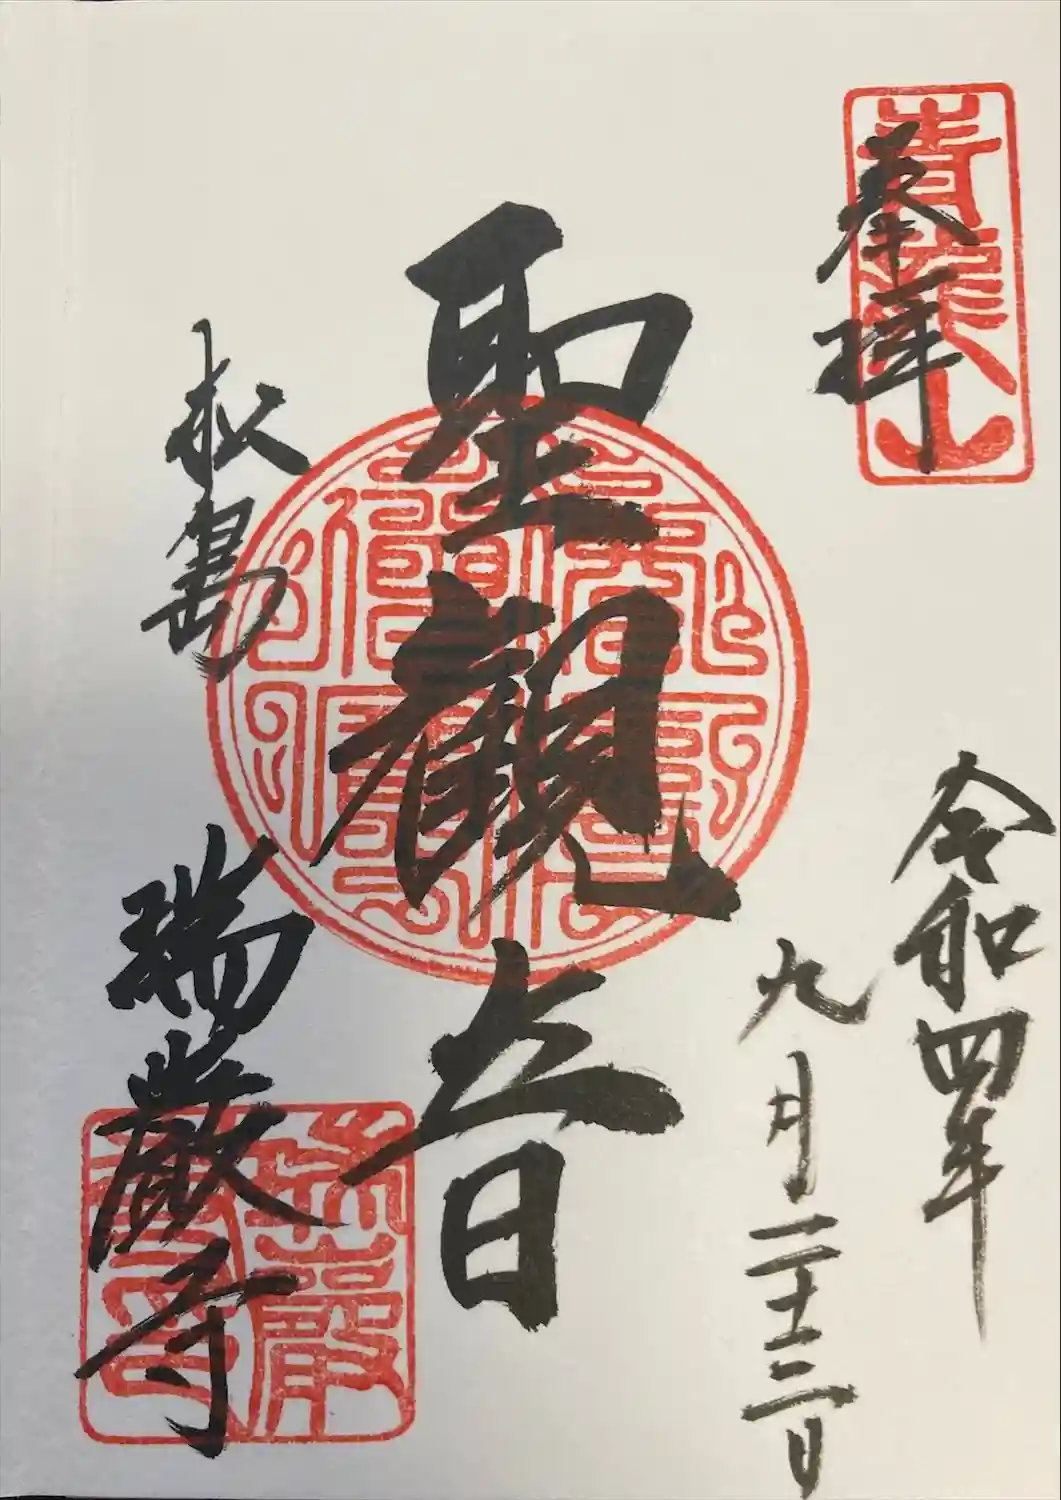 青龍山
奉拝
令和四年
九月二十三日
聖観音
松島
瑞巌寺